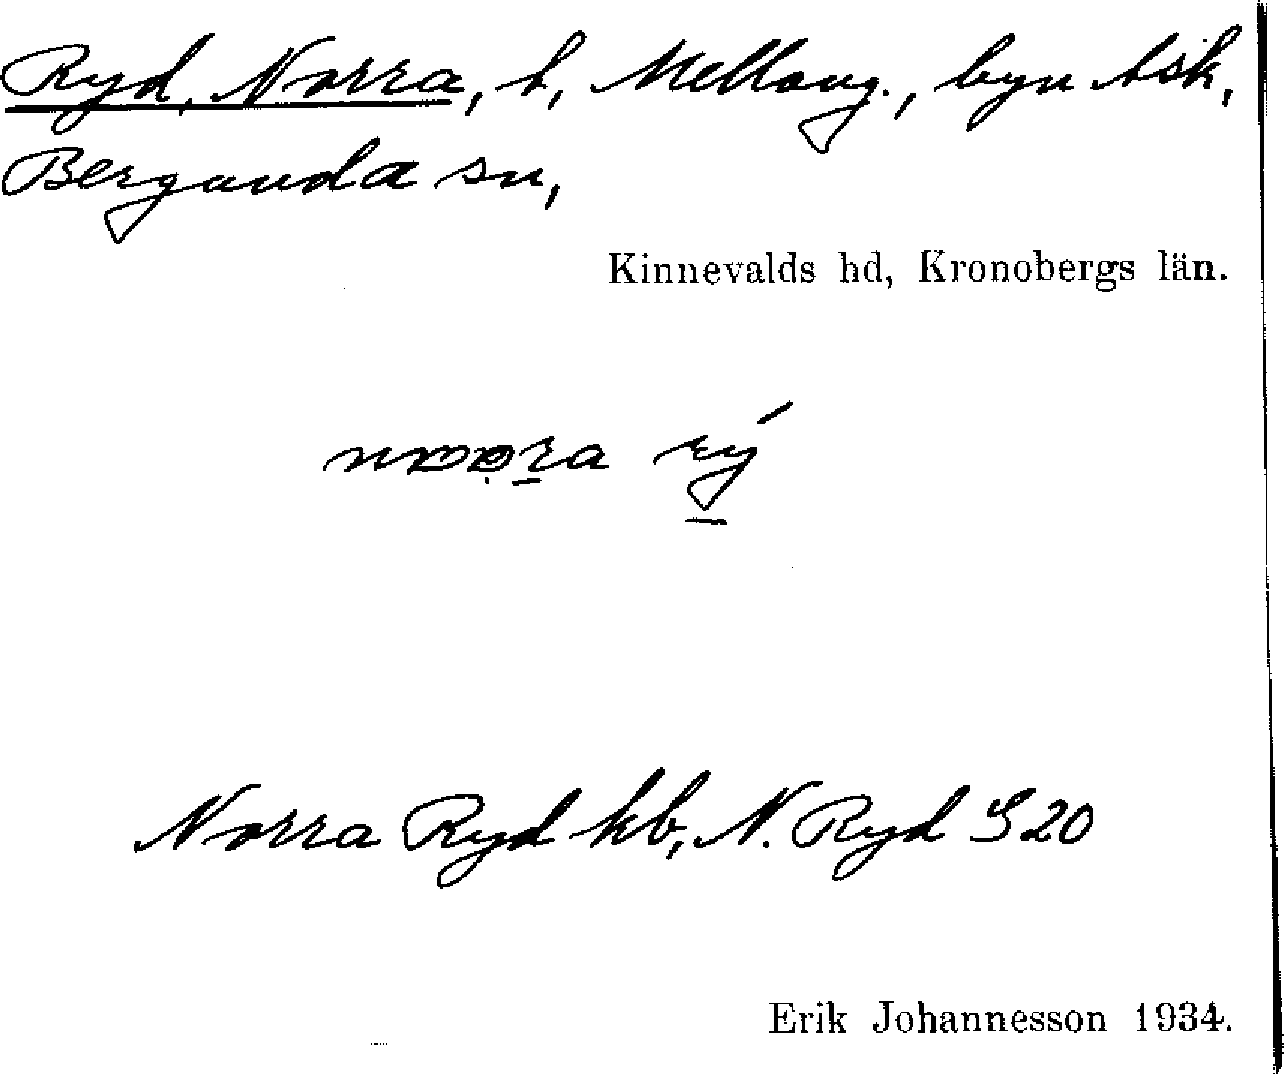 Ryd, Norra, t, Mellang., byn Ask,
Bergunda sn,
Kinnevalds hd, Kronobergs län.
Norra Ryd kb, N. Ryd S 20
Erik Johannesson 1934.